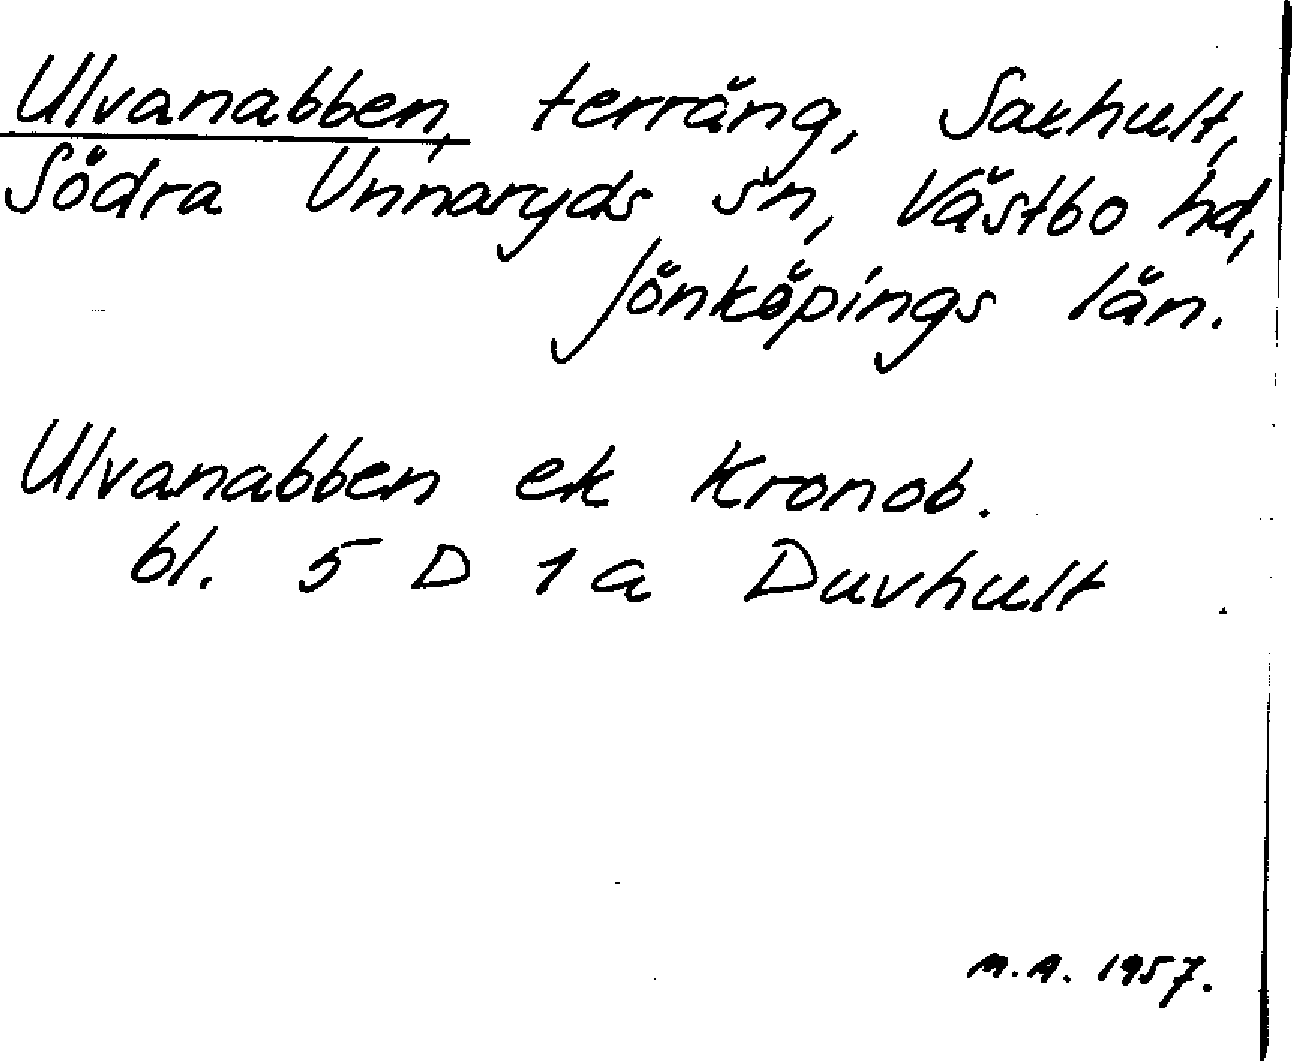 Ulvanabben, terräng, Saxhult,
Södra Unnaryds sn, Västbo hd,
Jönköpings län.
Ulvanabben ek Kronob.
bl. 5 D 1a Duvhult
M.A. 1957.